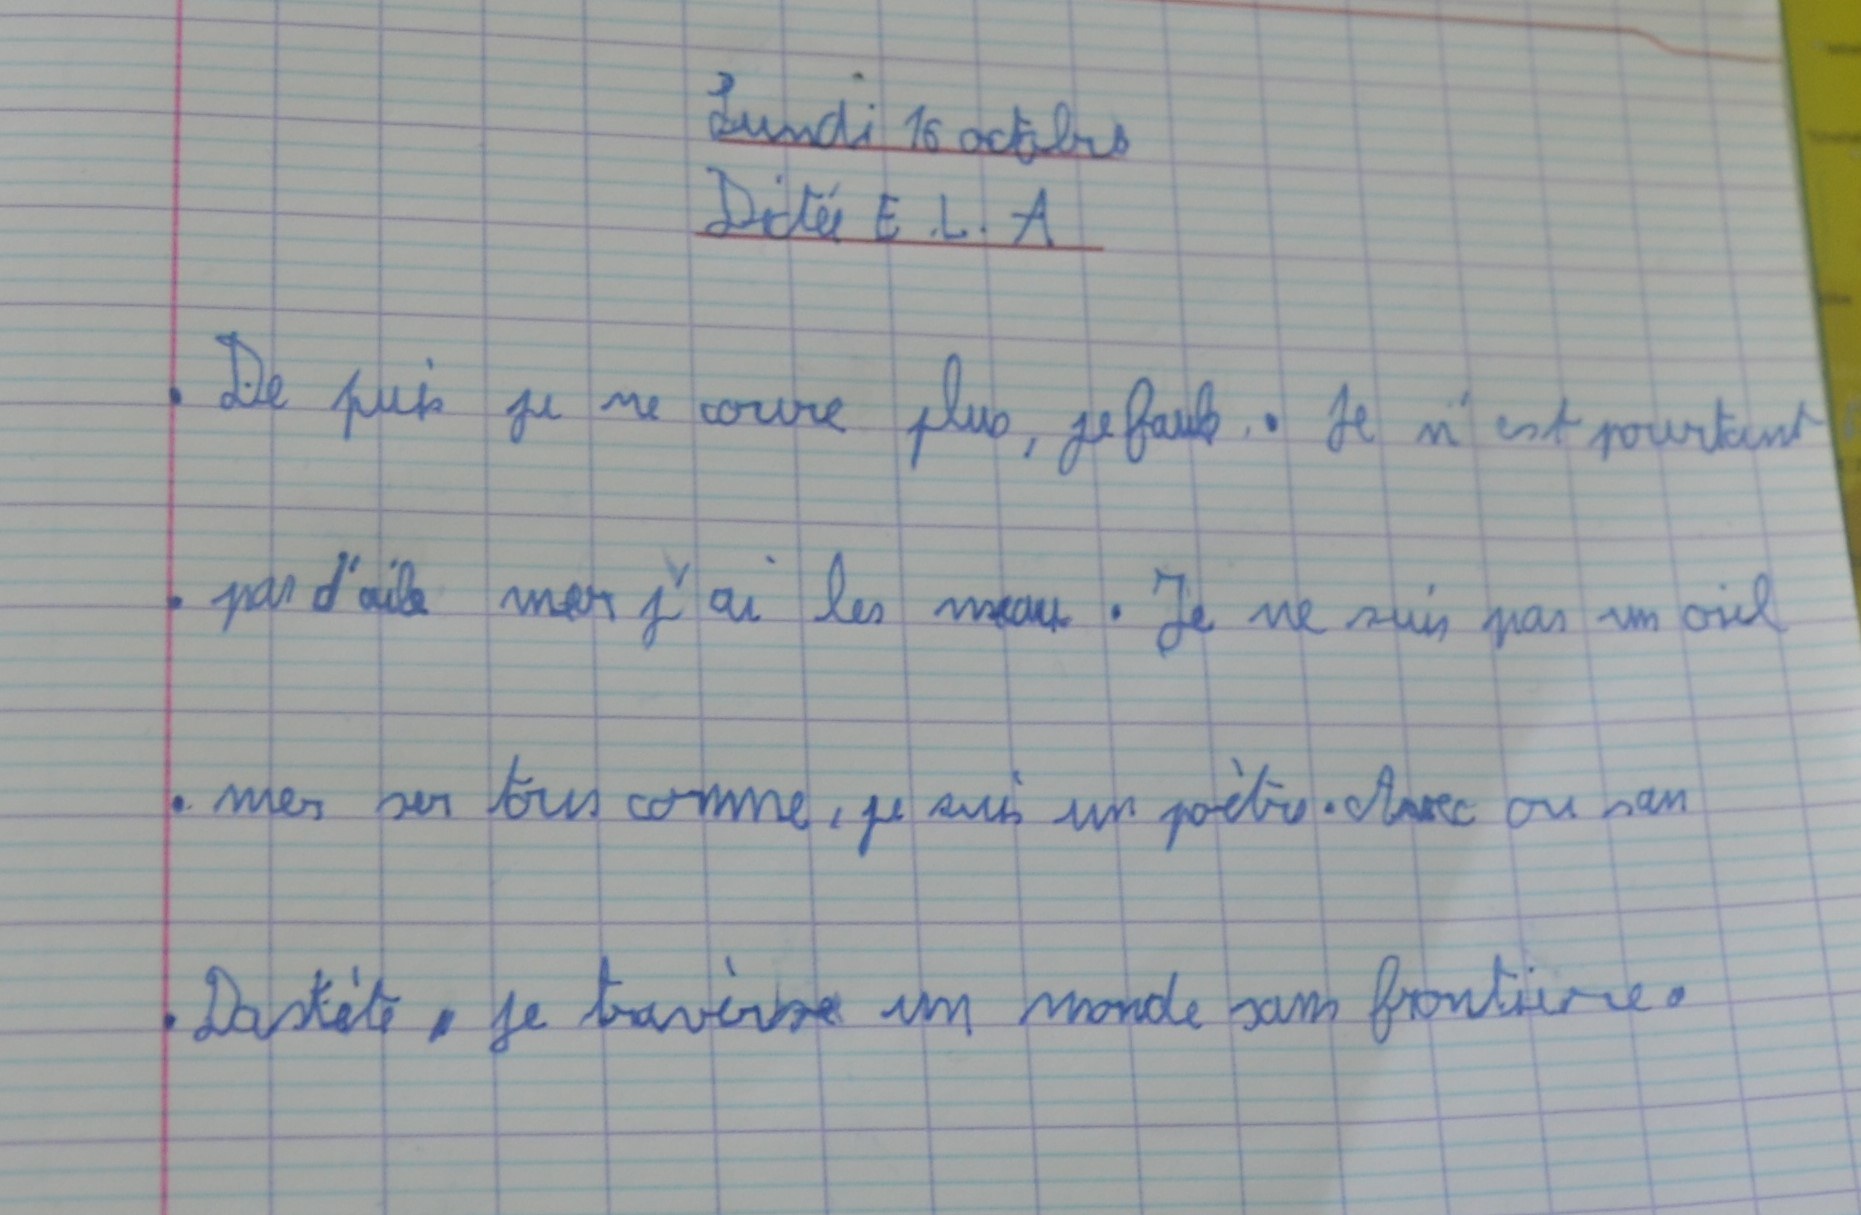 Lundi 16 octobre
Dictée E.L.A
. De puis je ne coure plus, je . Je n'est pourtant
. pas d'aile mer j'ai les meau. Je ne suis pas un oiel
. mes ses tous comme, je suis un poète. Avec ou san
. Daskète, je travèrse un monde sans frontiere.